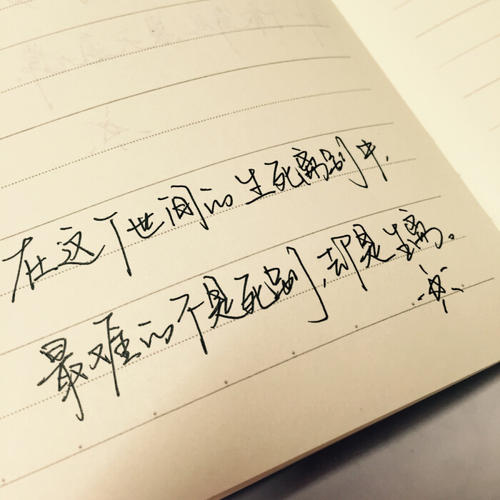 在这个世间的生死离别中,
最难的不是死别,却是生离。